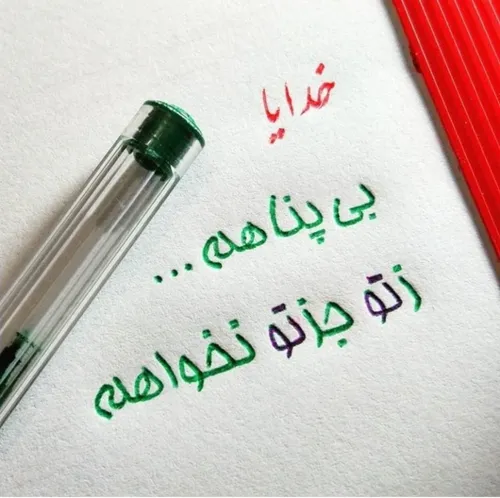 خدایا
بی پناهم ...
ز تو جز تو نخواهم